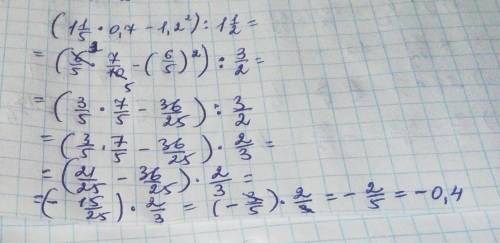 (1 1/5 · 0,7 − 1,2²) : 1 1/2 =
= (6/5 · 7/10 − (6/5)²) : 3/2 =
= (3/5 · 7/5 − 36/25) : 3/2
= (3/5 · 7/5 − 36/25) · 2/3 =
= (21/25 − 36/25) · 2/3 =
= (− 15/25) · 2/3 = (− 3/5) · 2/3 = − 2/5 = −0,4